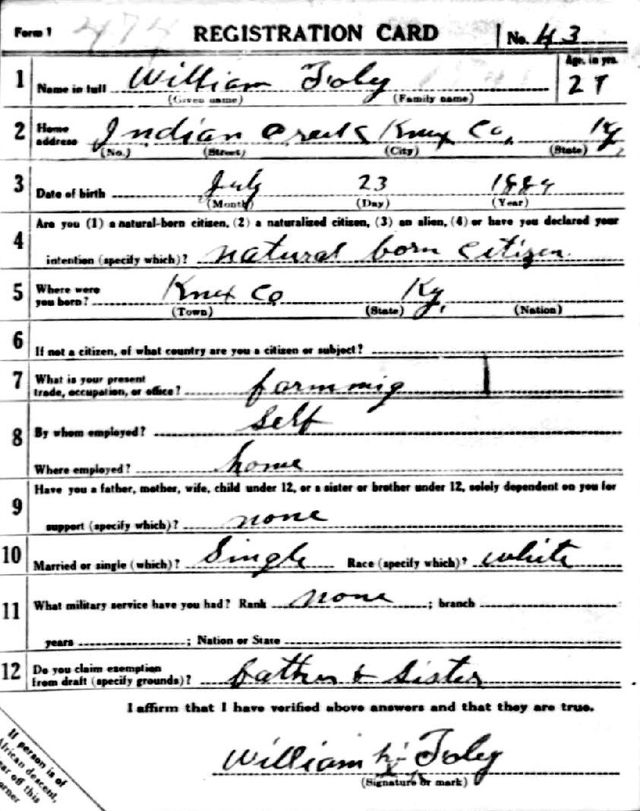 Form 1 474 REGISTRATION CARD No. 43
1 Name in full William Foley Age, in yrs.
(Given name) (Family name) 27
2 Home address Indian Creek Knox Co, Ky,
(No.) (Street) (City) (State)
3 Date of birth July 23
(Month) (Day) (Year)
4 Are you (1) a natural-born citizen, (2) a naturalized citizen, (3) an alien, (4) or have you declared your
intention (specify which)? natural born citizen
5 Where were you born? Knox Co Ky,
(Town) (State) (Nation)
6 If not a citizen, of what country are you a citizen or subject?
7 What is your present
trade, occupation, or office? farmmig
8 By whom employed? Self
Where employed? home
9 Have you a father, mother, wife, child under 12, or a sister or brother under 12, solely dependent on you for
support (specify which)? none
10 Married or single (which)? Single Race (specify which)? white
11 What military service have you had? Rank none ; branch
years ; Nation or State
12 Do you claim exemption
from draft (specify grounds)? father & Sister
I affirm that I have verified above answers and that they are true.
William Foley
(Signature or mark)
If person is of
African descent,
off this
corner